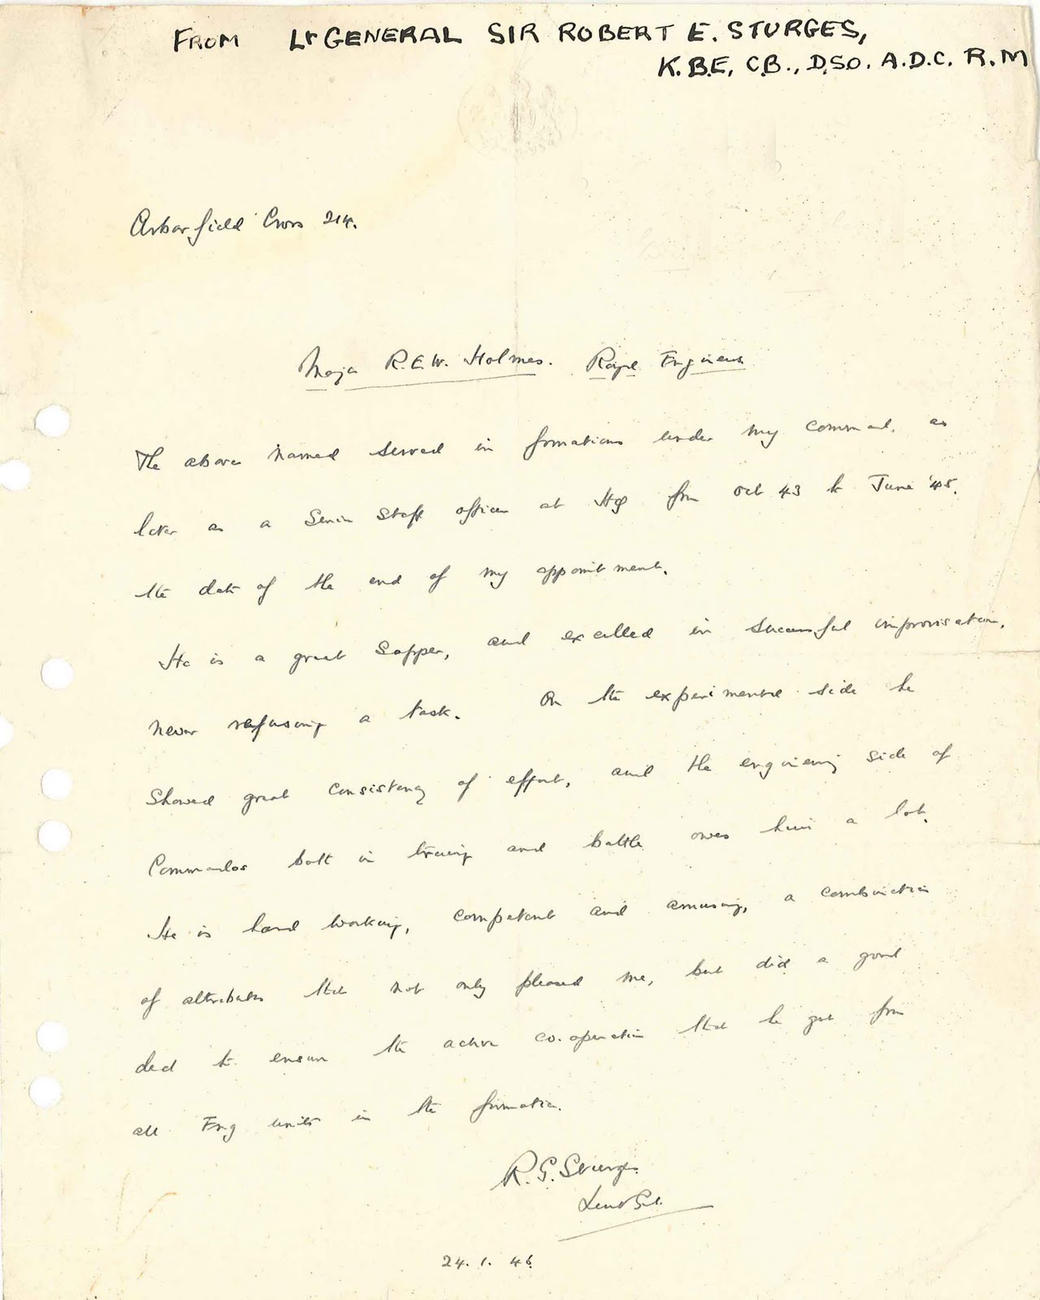 FROM Lt GENERAL SIR ROBERT E. STURGES,
K.B.E, C.B., D.S.O. A.D.C. R.M
Arborfield Cross 214.
Major R.E.W. Holmes. Royal Engineers
The above named served in formations under my command, as
later as a Senior Staff officer at HQ from Oct 43 to June '45.
the date of the end of my appointment.
He is a great Sapper, and excelled in successful improvisation,
never refusing a task. On the experimental side he
showed great consistency of effort, and the engineering side of
Commandos both in training and battle owes him a lot.
He is hard working, competent and amusing, a combination
of attributes that not only pleased me, but did a good
deal to ensure the active co.operation that he got from
all Eng units in the formation.
R. G. Sturges
Lieut Gen.
24. 1. 46